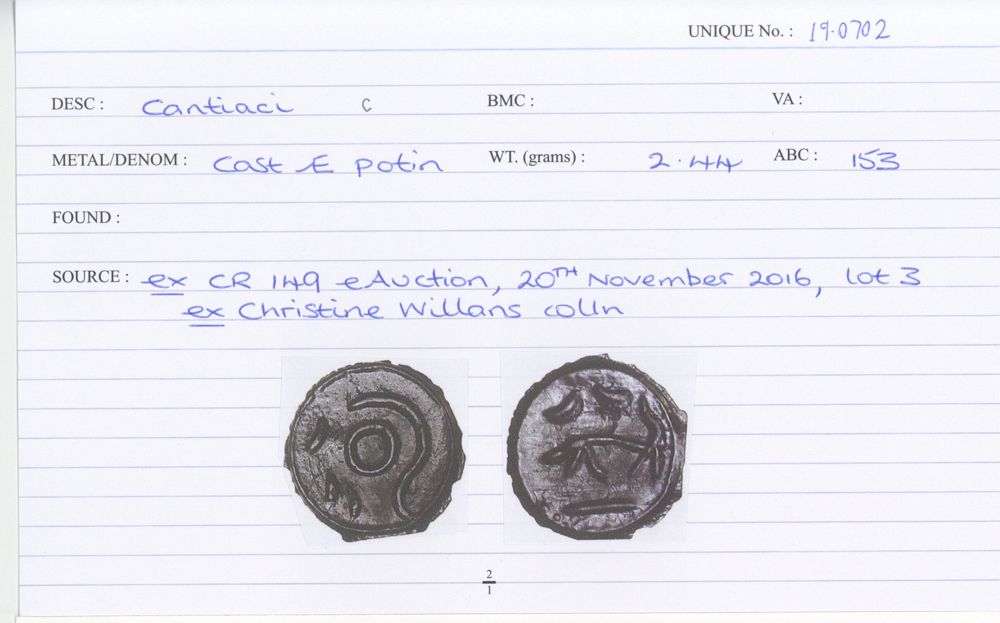 UNIQUE No. : 19.0702
DESC : Cantiaci C BMC : VA :
METAL/DENOM : Cast Æ potin WT. (grams) : 2.44 ABC : 153
FOUND :
SOURCE : ex CR 149 eAuction, 20TH November 2016, lot 3
ex Christine Willans colln
2
1